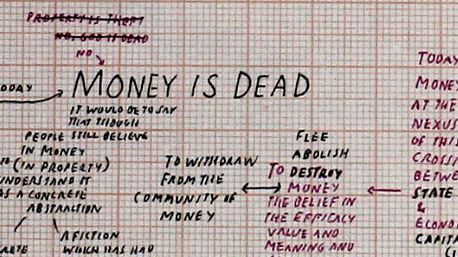 PROPERTY IS THEFT
NO, GOD IS DEAD
NO
TODAY
MONEY IS DEAD
IT WOULD BE TO SAY
THAT THOUGH
PEOPLE STILL BELIEVE
IN MONEY
(IN PROPERTY)
UNDERSTAND IT
AS A CONCRETE
ABSTRACTION
A FICTION
WHICH HAS HAD
TO WITHDRAW
FROM THE
COMMUNITY OF
MONEY
FLEE
ABOLISH
TO DESTROY
MONEY
THE BELIEF IN
THE EFFICACY
VALUE AND
MEANING AND
TODAY
MONEY
AT THE
NEXUS
OF THIS
CROSSI
BETWE
STATE
&
ECONO
CAPITA